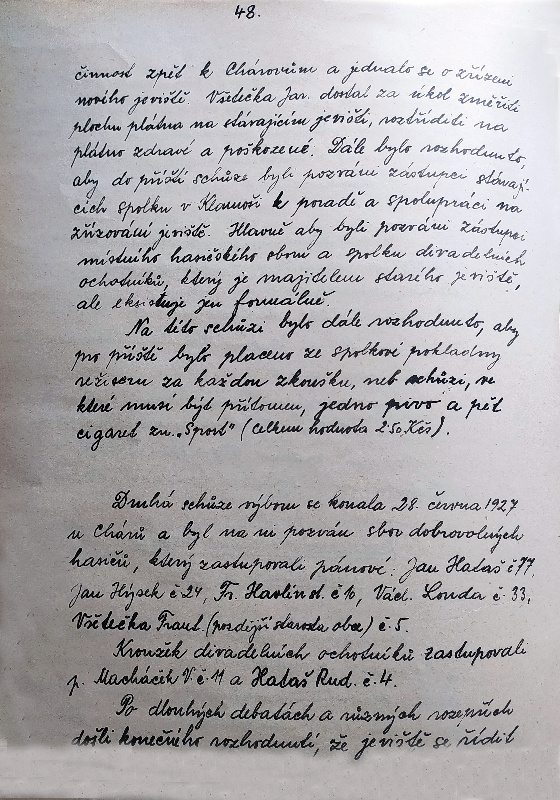 48.
činnost zpět k Chárovům a jednalo se o zřízení
nového jeviště. Všetečka Jar. dostal za úkol změřiti
plochu plátna na stávajícím jevišti, roztříditi na
plátno zdravé a poškozené. Dále bylo rozhodnuto,
aby do příští schůze byli pozváni zástupci stávají-
cích spolku v Klamoši k poradě a spolupráci na
zřizování jeviště. Hlavně aby byli pozváni zástupci
místního hasičského sboru a spolku divadelních
ochotníků, který je majitelem starého jeviště,
ale eksistuje jen formálně.
Na této schůzi bylo dále rozhodnuto, aby
pro příště bylo placeno ze spolkové pokladny
režiseru za každou zkoušku, neb schůzi, ve
které musí být přítomen, jedno pivo a pět
cigaret zn. „Sport" (celkem hodnota 2·50 Kčs).
Druhá schůze výboru se konala 28. června 1927
u Chárů a byl na ni pozván sbor dobrovolných
hasičů, který zastupovali pánové: Jan Hataš č 77,
Jan Hýsek č 24, Fr. Havlín st. č 10, Václ. Londa č. 33,
Všetečka Frant. (pozdější starosta obce) č. 5.
Kroužek divadelních ochotníků zastupovali
p. Macháček V. č. 11 a Hataš Rud. č. 4.
Po dlouhých debatách a různých rozepřích
došli konečného rozhodnutí, že jeviště se řídit